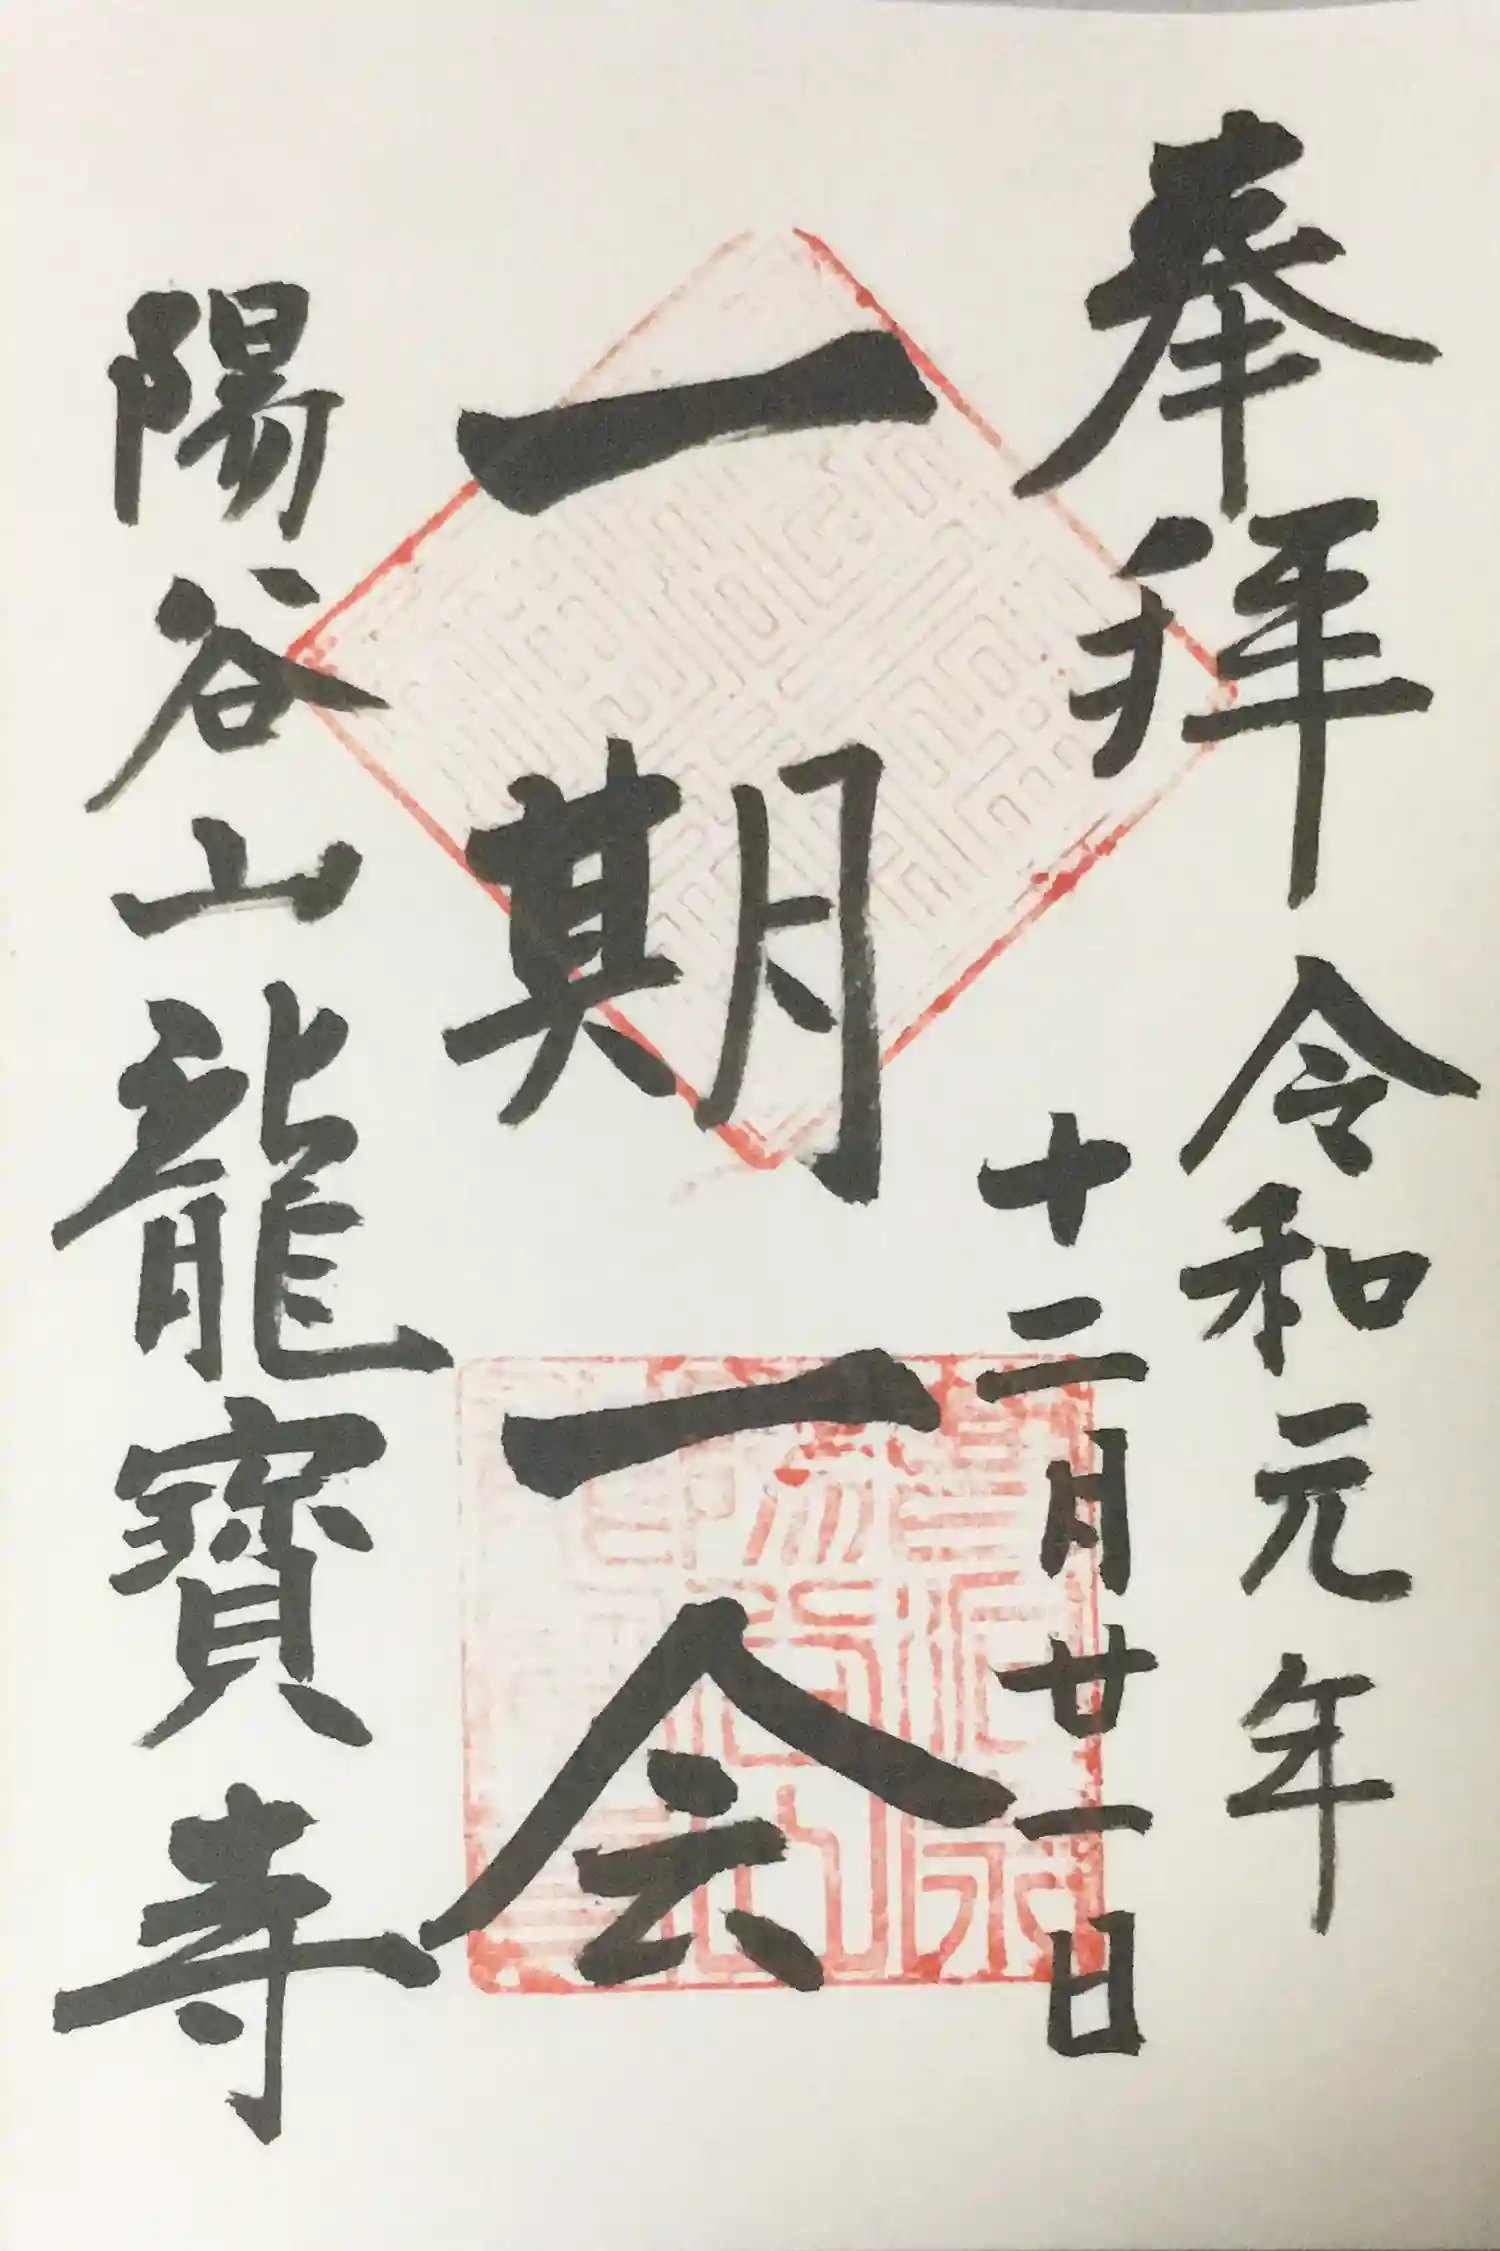 奉拝 令和元年
十二月廿一日
一期一会
陽谷山龍寶寺